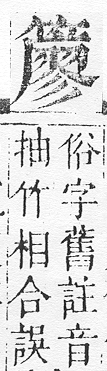 俗字舊註音
抽竹相合誤